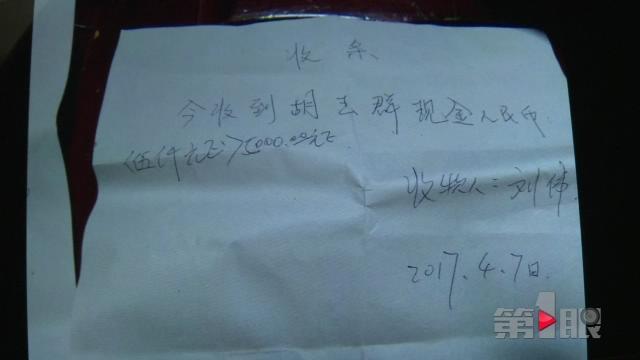 收条
今收到胡志群现金人民币
(伍仟元正)5000.00元正
收物人:刘伟
2017.4.7日.
第1眼